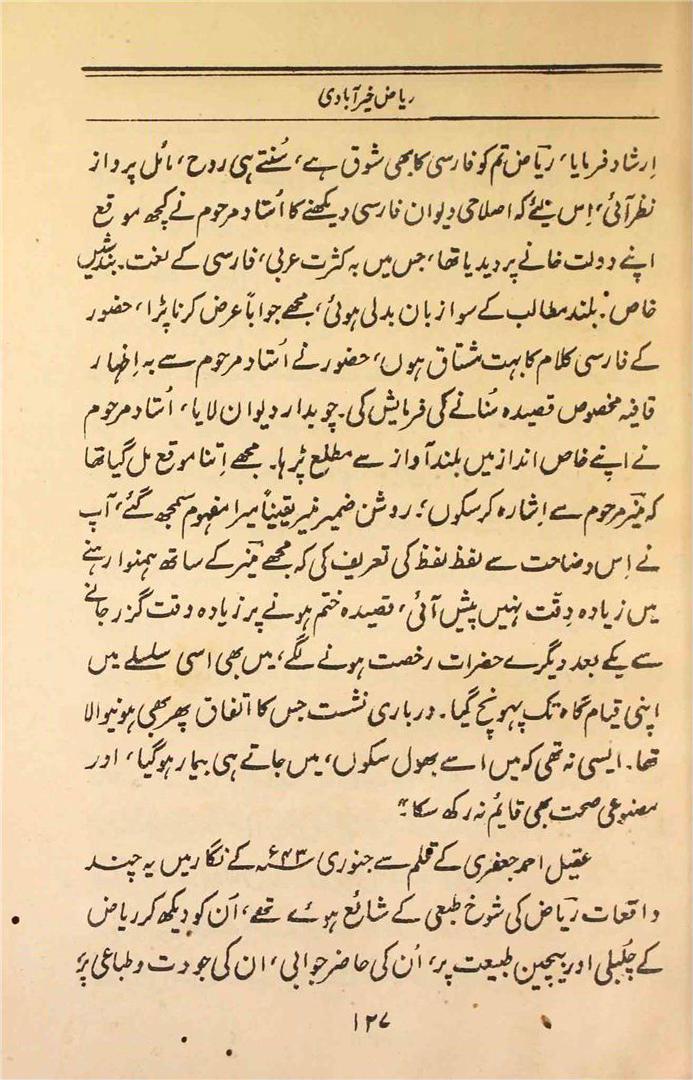 ریاض خیرآبادی
اِرشاد فرمایا، ریاؔض تم کو فارسی کا بھی شوق ہے، سُنتے ہی روح، مائل پرواز
نظر آئی، اِس لئے کہ اصلاحی دیوان فارسی دیکھنے کا اُستاد مرحوم نے کچھ موقع
اپنے دولت خانے پر دیدیا تھا، جس میں بہ کثرت عربی، فارسی کے لغت۔ بندشیں
خاص: بلند مطالب کے سوا زبان بدلی ہوئی، مجھے جواباً عرض کرنا پڑا، حضور
کے فارسی کلام کا بہت مشتاق ہوں، حضور نے اُستاد مرحوم سے بہ اِظہار
قافیہ مخصوص قصیدہ سُنانے کی فرمایش کی۔ چوبدار دیوان لایا، اُستاد مرحوم
نے اپنے خاص انداز میں بلند آواز سے مطلع پڑہا۔ مجھے اِتنا موقع مل گیا تھا
کہ منیؔر مرحوم سے اِشارہ کر سکوں؛ روشن ضمیر منیر یقیناً میرا مفہوم سمجھ گئے، آپ
نے اِس وضاحت سے لفظ لفظ کی تعریف کی کہ مجھے منیؔر کے ساتھ ہمنوا رہنے
میں زیادہ دِقّت نہیں پیش آئی، قصیدہ ختم ہونے پر زیادہ وقت گزر جانے
سے یکے بعد دیگرے حضرات رخصت ہونے لگے، میں بھی اسی سلسلے میں
اپنی قیام گاہ تک پہونچ گیا۔ درباری نشست جس کا اتفاق پھر بھی ہونیوالا
تھا۔ ایسی نہ تھی کہ میں اسے بھول سکوں، میں جاتے ہی بیمار ہو گیا، اور
مصنوعی صحت بھی قایم نہ رکھ سکا۔"
عقیل احمد جعفری کے قلم سے جنوری ۴۳ء کے نگار میں یہ چند
واقعات ریاؔض کی شوخ طبعی کے شائع ہوئے تھے، اُن کو دیکھ کر ریاض
کے چُلبلی اور بیچین طبیعت پر، اُن کی حاضر جوابی، ان کی جودت و طباعی پر
۱۲۷